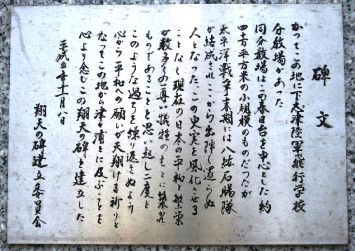 碑文
かつてこの地に下志津陸軍飛行学校
分教場があった
同分教場はこの春日台を中心とした約
四百平方米の小規模のものだったが
太平洋戦争末期には八紘石腸隊
が結成されここから出陣し還らぬ
人となったこの史実を風化させる
ことなく現在の日本の平和と繁栄
が数多の尊い犠牲のもとに築かれた
ものであることを思い起し二度と
このような過ちを繰り返さぬよう
心から平和への願いが天翔ける祈りと
なってこの地から津々浦々に及ぶことを
心より念じこの翔天の碑を建立した
平成 年十二月八日
翔天の碑建立委員会